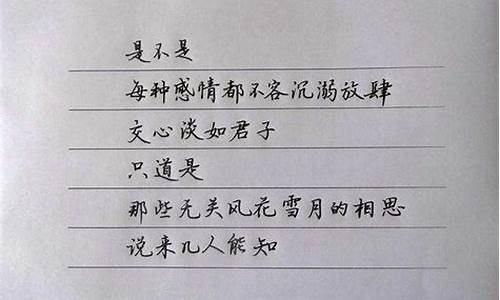 是不是
每种感情都不容沉溺放肆
交心淡如君子
只道是
那些无关风花雪月的相思
说来几人能知